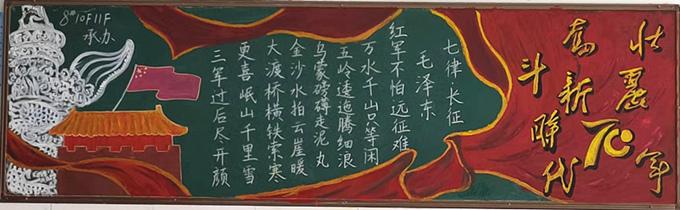 壮麗70年
奋斗新時代
七律·长征
毛泽东
红军不怕远征难
万水千山只等闲
五岭逶迤腾细浪
乌蒙磅礴走泥丸
金沙水拍云崖暖
大渡桥横铁索寒
更喜岷山千里雪
三军过后尽开颜
8#10F11F
承办